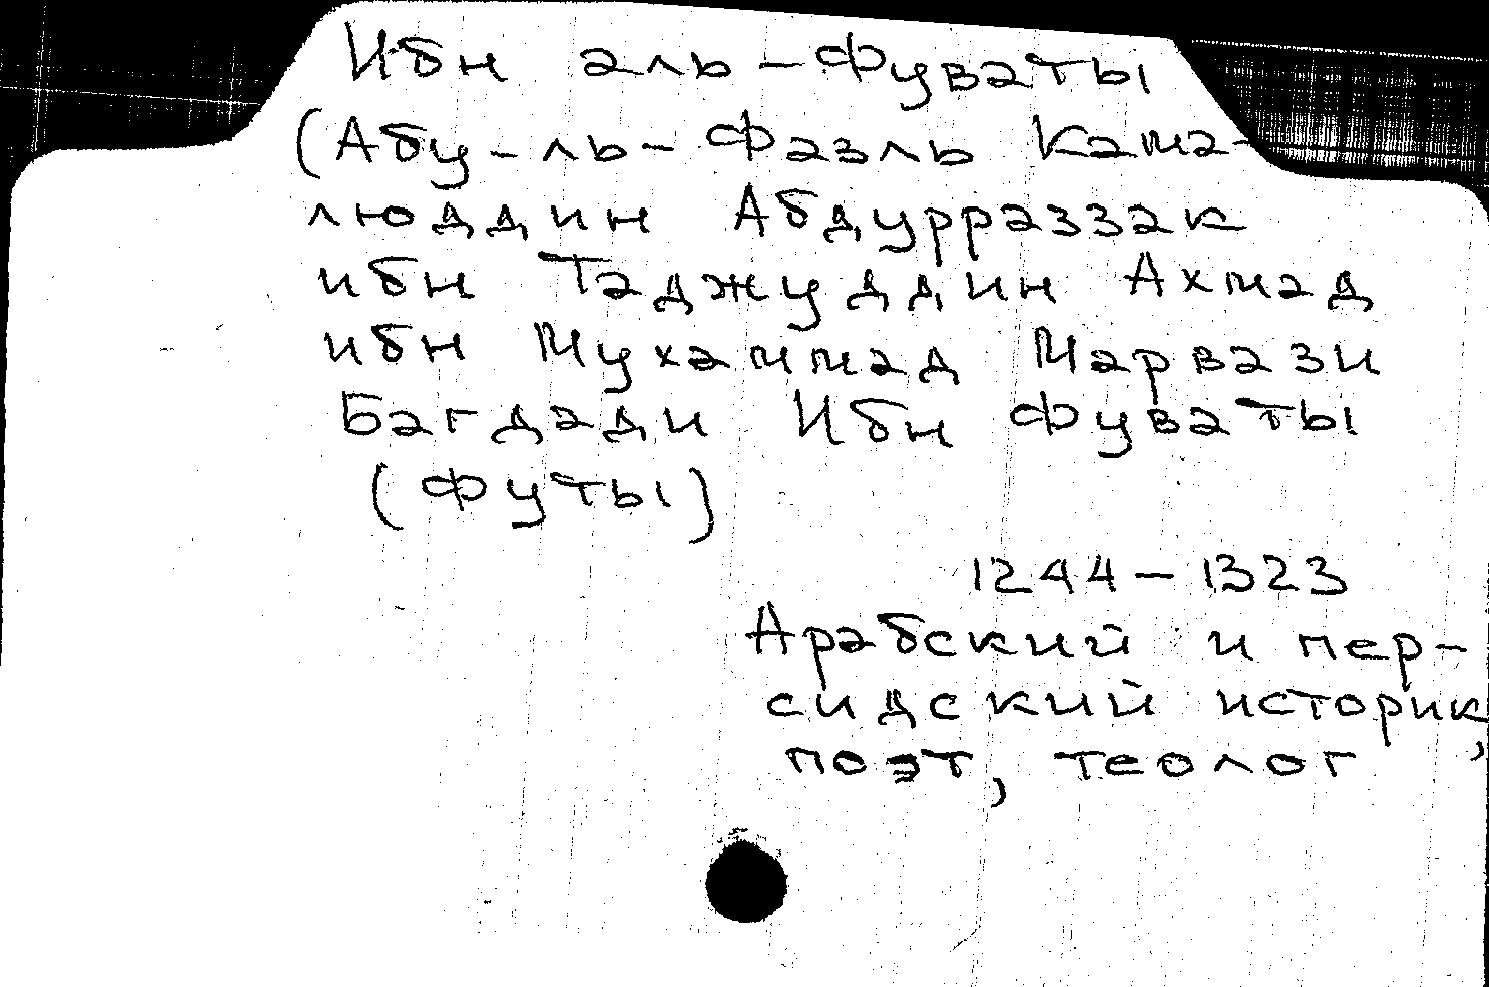 Ибн аль-Фуваты
(Абу-ль-Фазль Кама-
люддин Абдурраззак
ибн Таджуддин Ахмад
ибн Мухаммад Марвази
Багдади Ибн Фуваты
(Футы)
1244-1323
Арабский и пер-
сидский историк,
поэт, теолог